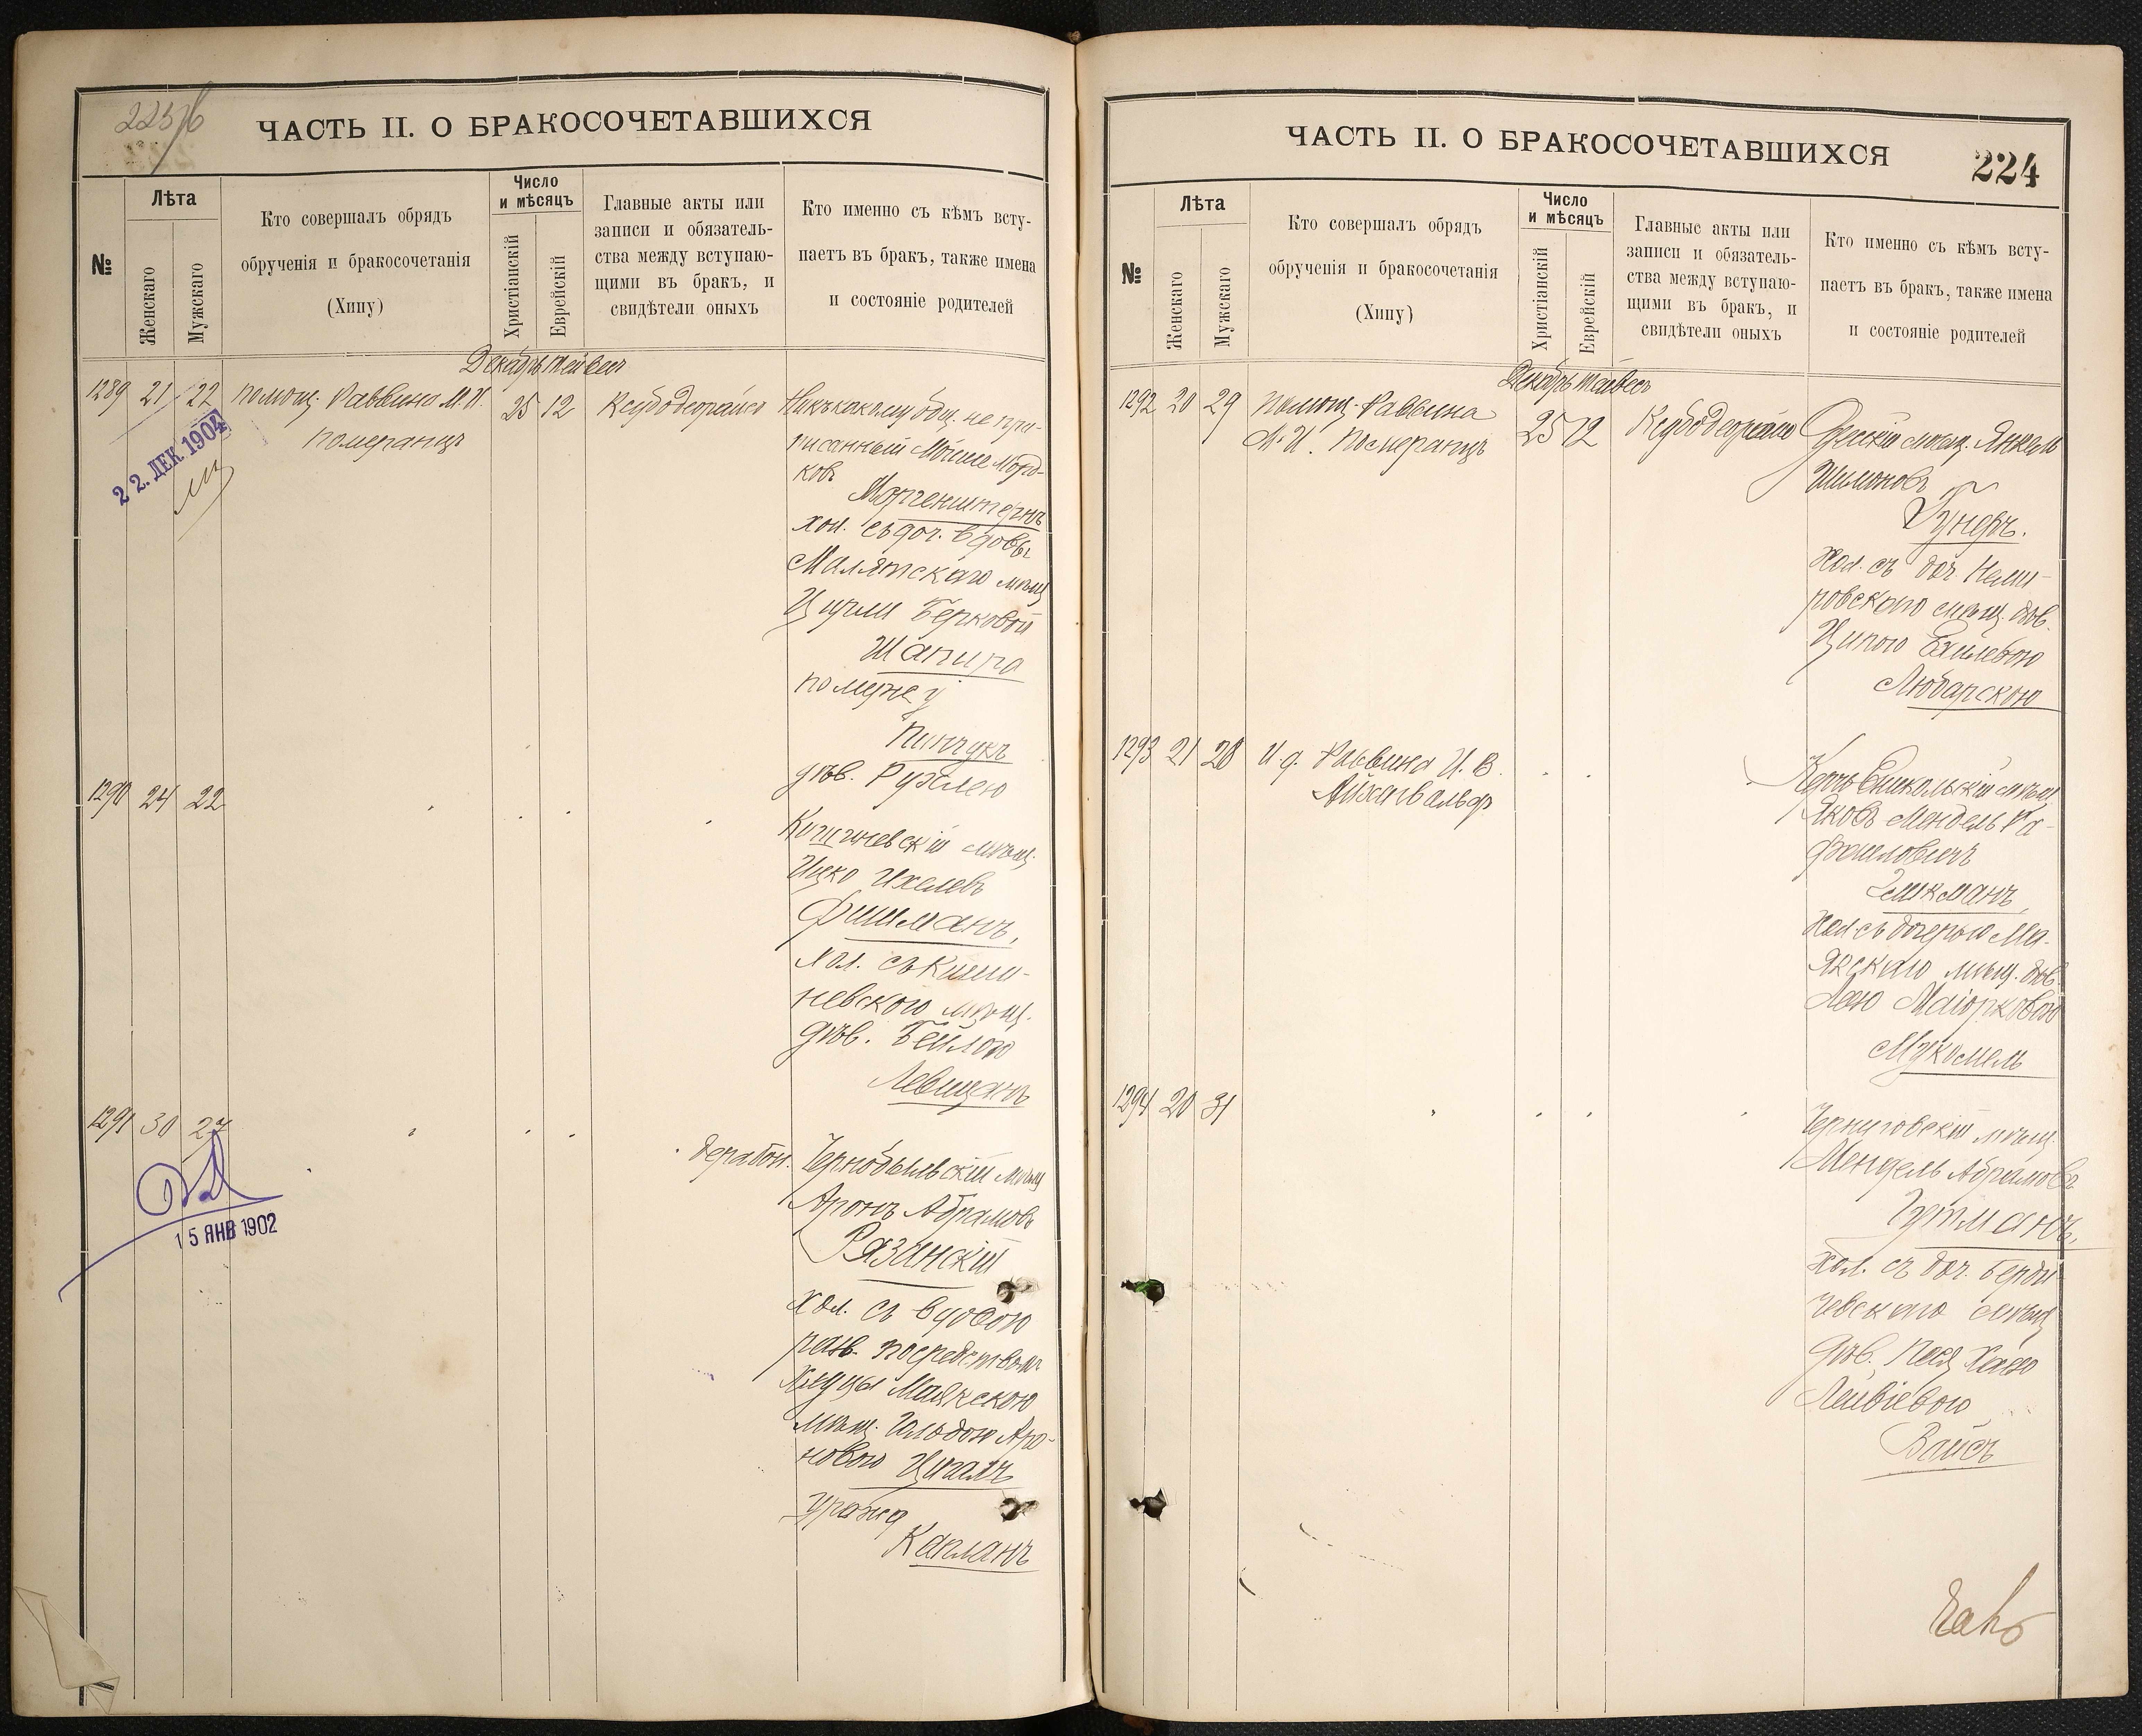 ЧАСТЬ II. О БРАКОСОЧЕТАВШИХСЯ
№
Лѣта
Женскаго
Мужскаго
Кто совершалъ обрядъ
обрученія и бракосочетанія
(Хипу)
Число
и мѣсяцъ
Христіанскій
Еврейскій
Главные акты или
записи и обязатель-
ства между вступаю-
щими въ бракъ, и
свидѣтели оныхъ
Кто именно съ кѣмъ всту-
паетъ въ бракъ, также имена
и состояніе родителей
Декабрь Тейвесъ
1289 21 22 Помощ. Раввина М. И.
Померанцъ
25 12
Ни къ какому общ. не при-
писанный Мойше Морд-
ковъ
Моргенштернъ
хол. съ доч. вдовы
Малятскаго мѣщ
Цирли Берковой
Шапира
по мужу
Пинчукъ
дѣв. Рухлею
22. ДЕК 1904
1290 24 22
Кишиневскій мѣщ.
Ицко Ихелевъ
Фишманъ,
хол. съ Киши-
невскою мѣщ.
дѣв. Бейлою
Левищанъ
1291 30 27
Чернобыльскій мѣщ
Аронъ Абрамовъ
Рязанскій
хол. съ вдовою
разв. посредствомъ
Хлуцы Маякскою
мѣщ. Гольдою Аро-
новою Цигаль
урожд
Капланъ
15 ЯНВ 1902
ЧАСТЬ II. О БРАКОСОЧЕТАВШИХСЯ
224
№
Лѣта
Женскаго
Мужскаго
Кто совершалъ обрядъ
обрученія и бракосочетанія
(Хипу)
Число
и мѣсяцъ
Христіанскій
Еврейскій
Главные акты или
записи и обязатель-
ства между вступаю-
щими въ бракъ, и
свидѣтели оныхъ
Кто именно съ кѣмъ всту-
паетъ въ бракъ, также имена
и состояніе родителей
Декабрь Тайвесъ
1292 20 29 Помощ. Раввина
М. И. Померанцъ
25 12
Одесскій мѣщ. Янкель
Шимоновъ
хол. съ доч. Неми-
ровскаго мѣщ. дѣв.
Ципою Ехилевою
Любарскою
1293 21 28 И д. Раввина И. В.
Айхенвальдъ
Керчь Еникольскій мѣщ
Яковъ Мендель Ра-
фаиловичъ
хол. съ дочерью Ма-
якскаго мѣщ. дѣв.
Леею Маіорковою
Мукомель
1294 20 31
Черниговскій мѣщ
Мендель Абрамовъ
Гутманъ,
хол. съ доч. Берди-
чевскаго мѣщ
дѣв. Песя Хаею
Лейвіевою
Вайсъ